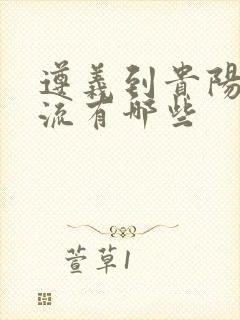 遵義到貴陽
流有哪些
萱草1